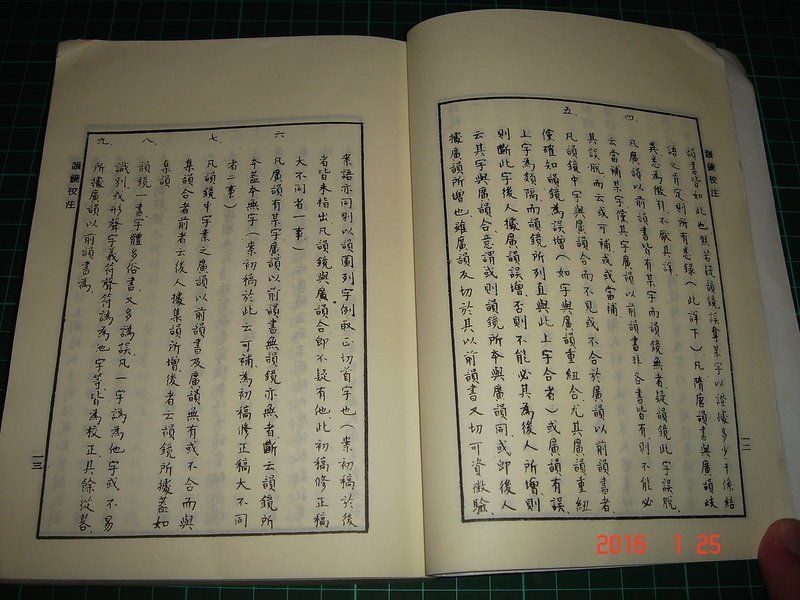 韻鏡校注
韻書皆如此也然若疑韻鏡誤奪某字以證據多少干係結
語之肯定則所有悉錄(此詳下)凡隋唐韻書與廣韻歧
異悉為徵引不厭其詳
四、凡廣韻以前韻書皆有某字而韻鏡無者疑韻鏡此字誤脫
云當補某字僅其字廣韻以前韻書非各書皆有則不能必
其誤脫而云或可補或當補
五、凡韻鏡中字與廣韻合而不見或不合於廣韻以前韻書者
僅確知韻鏡為誤增(如字與廣韻重紐合尤其廣韻重紐
上字為類隔而韻鏡所列直與此上字合者)或廣韻有誤
則斷此字後人據廣韻誤增否則不能必其為後人所增則
云其字與廣韻合意謂或則韻鏡所本與廣韻同或卽後人
據廣韻所增也雖廣韻反切於其以前韻書又切可資徵驗
一二
案語亦同則以韻圖列字例取正切首字也(案初稿於後
者皆未指出凡韻鏡與廣韻合卽不疑有他此初稿修正稿
大不同者一事)
六、凡廣韻有某字廣韻以前韻書無韻鏡亦無者斷云韻鏡所
本蓋本無字(案初稿於此云可補為初稿修正稿大不同
者二事)
七、凡韻鏡中字業之廣韻以前韻書及廣韻無有或不合而與
集韻合者前者云後人據集韻所增後者云韻鏡所據蓋如
集韻
八、韻鏡一書字體多俗書又多譌誤凡一字譌為他字或不易
識別或形聲字義符聲符譌為他字等皆為校正其餘從畧
九、所據廣韻以前韻書為
韻鏡校注
一三
2016 1 25